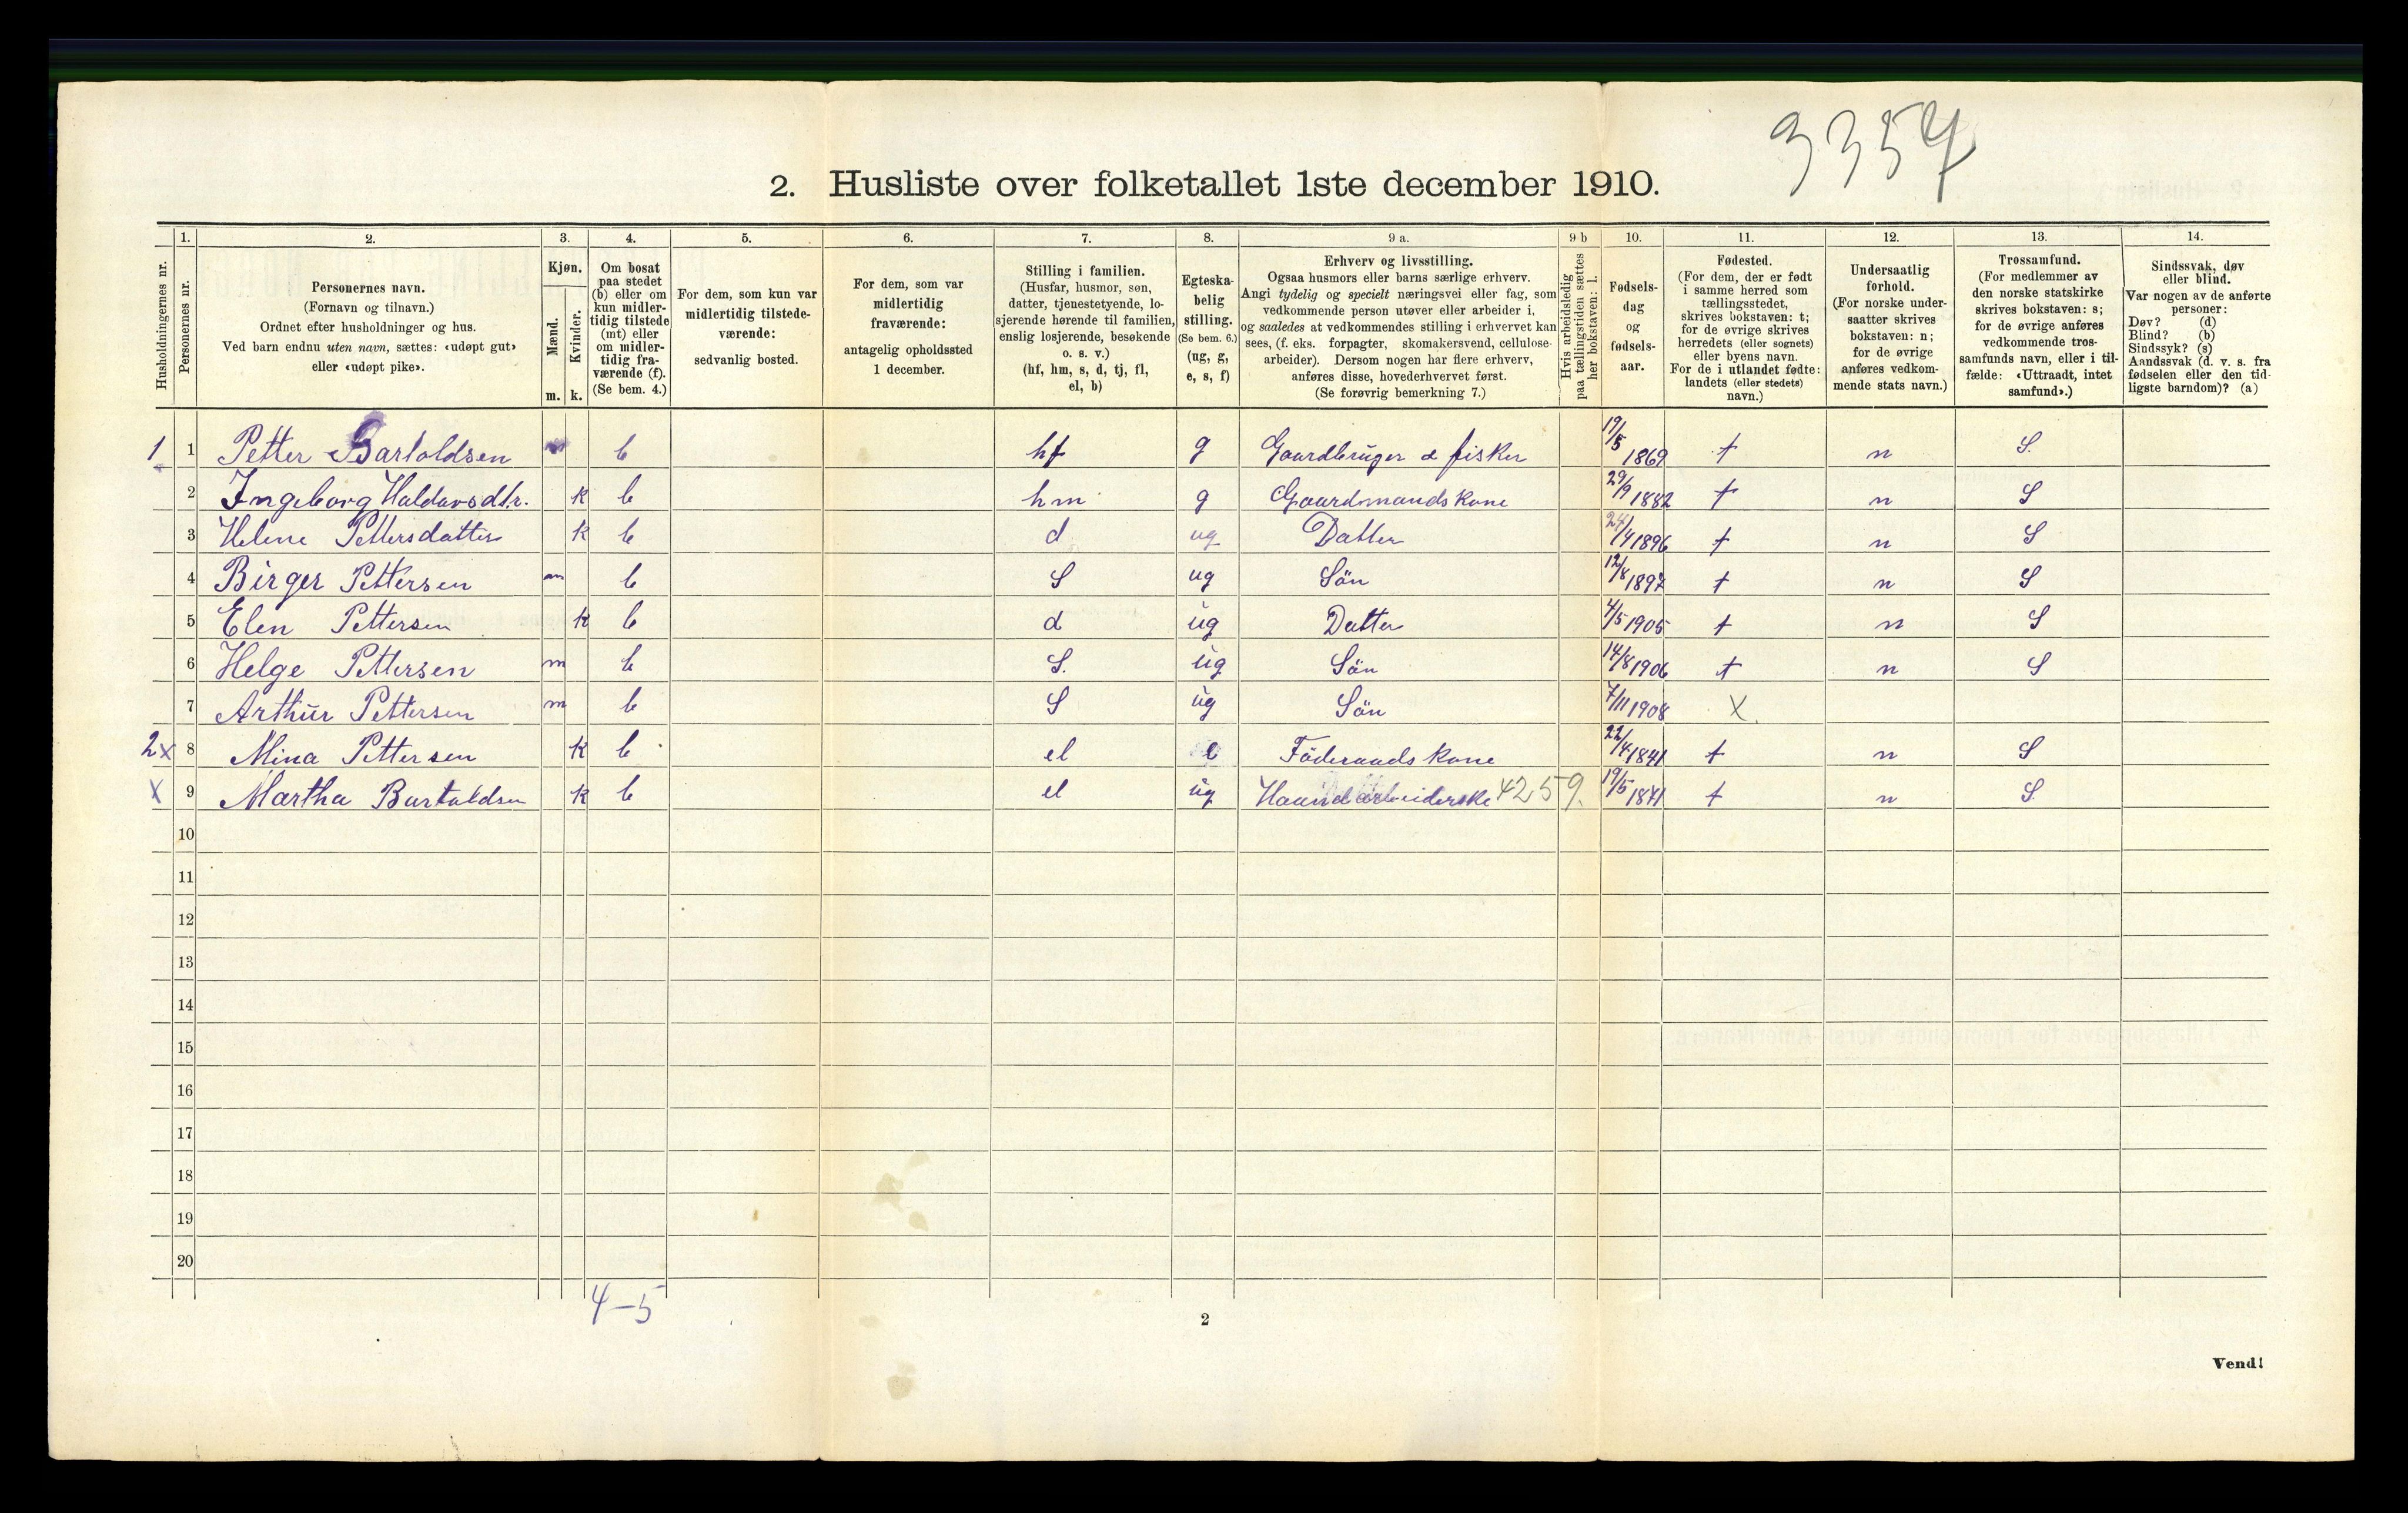 3357
2. Husliste over folketallet 1ste december 1910.
Husholdningernes nr.
1.
Personernes nr.
2.
Personernes navn.
(Fornavn og tilnavn.)
Ordnet efter husholdninger og hus.
Ved barn endnu uten navn, sættes: «udøpt gut»
eller «udøpt pike».
3.
Kjøn.
Mænd.
Kvinder.
m. k.
4.
Om bosat
paa stedet
(b) eller om
kun midler-
tidig tilstede
(mt) eller
om midler-
tidig fra-
værende (f).
(Se bem. 4.)
5.
For dem, som kun var
midlertidig tilstede-
værende:
sedvanlig bosted.
6.
For dem, som var
midlertidig
fraværende:
antagelig opholdssted
1 december.
7.
Stilling i familien.
(Husfar, husmor, søn,
datter, tjenestetyende, lo-
sjerende hørende til familien,
enslig losjerende, besøkende
o. s. v.)
(hf, hm, s, d, tj, fl,
el, b)
8.
Egteska-
belig
stilling.
(Se bem. 6.)
(ug, g,
e, s, f)
9 a.
Erhverv og livsstilling.
Ogsaa husmors eller barns særlige erhverv.
Angi tydelig og specielt næringsvei eller fag, som
vedkommende person utøver eller arbeider i,
og saaledes at vedkommendes stilling i erhvervet kan
sees, (f. eks. forpagter, skomakersvend, cellulose-
arbeider). Dersom nogen har flere erhverv,
anføres disse, hovederhvervet først.
(Se forøvrig bemerkning 7.)
9 b
Hvis arbeidsledig
paa tællingstiden sættes
her bokstaven: l.
10.
Fødsels-
dag
og
fødsels-
aar.
11.
Fødested.
(For dem, der er født
i samme herred som
tællingsstedet,
skrives bokstaven: t;
for de øvrige skrives
herredets (eller sognets)
eller byens navn.
For de i utlandet fødte:
landets (eller stedets)
navn.)
12.
Undersaatlig
forhold.
(For norske under-
saatter skrives
bokstaven: n;
for de øvrige
anføres vedkom-
mende stats navn.)
13.
Trossamfund.
(For medlemmer av
den norske statskirke
skrives bokstaven: s;
for de øvrige anføres
vedkommende tros-
samfunds navn, eller i til-
fælde: «Uttraadt, intet
samfund».)
14.
Sindssvak, døv
eller blind.
Var nogen av de anførte
personer:
Døv? (d)
Blind? (b)
Sindssyk? (s)
Aandssvak (d. v. s. fra
fødselen eller den tid-
ligste barndom)? (a)
1 1 Petter Bartoldsen m b hf g Gaardbruger & fisker 19/5 1869 t n S.
2 Ingeborg Haldorsdtr. k b hm g Gaardmandskone 29/9 1882 t n S
3 Helene Pettersdatter k b d ug Datter 24/4 1896 t n S
4 Birger Pettersen m b S ug Sön 12/8 1897 t n S
5 Elen Pettersen k b d ug Datter 4/5 1905 t n S
6 Helge Pettersen m b S. ug Sön 14/8 1906 t n S
7 Arthur Pettersen m b S ug Sön 7/11 1908 X.
2x 8 Mina Pettersen k b el e Föderaadskone 22/4 1841 t n S
X 9 Martha Bartoldsen k b el ug Haandarbeiderske 4259. 19/5 1871 t n S.
10
11
12
13
14
15
16
17
18
19
20
4-5
2
Vend!